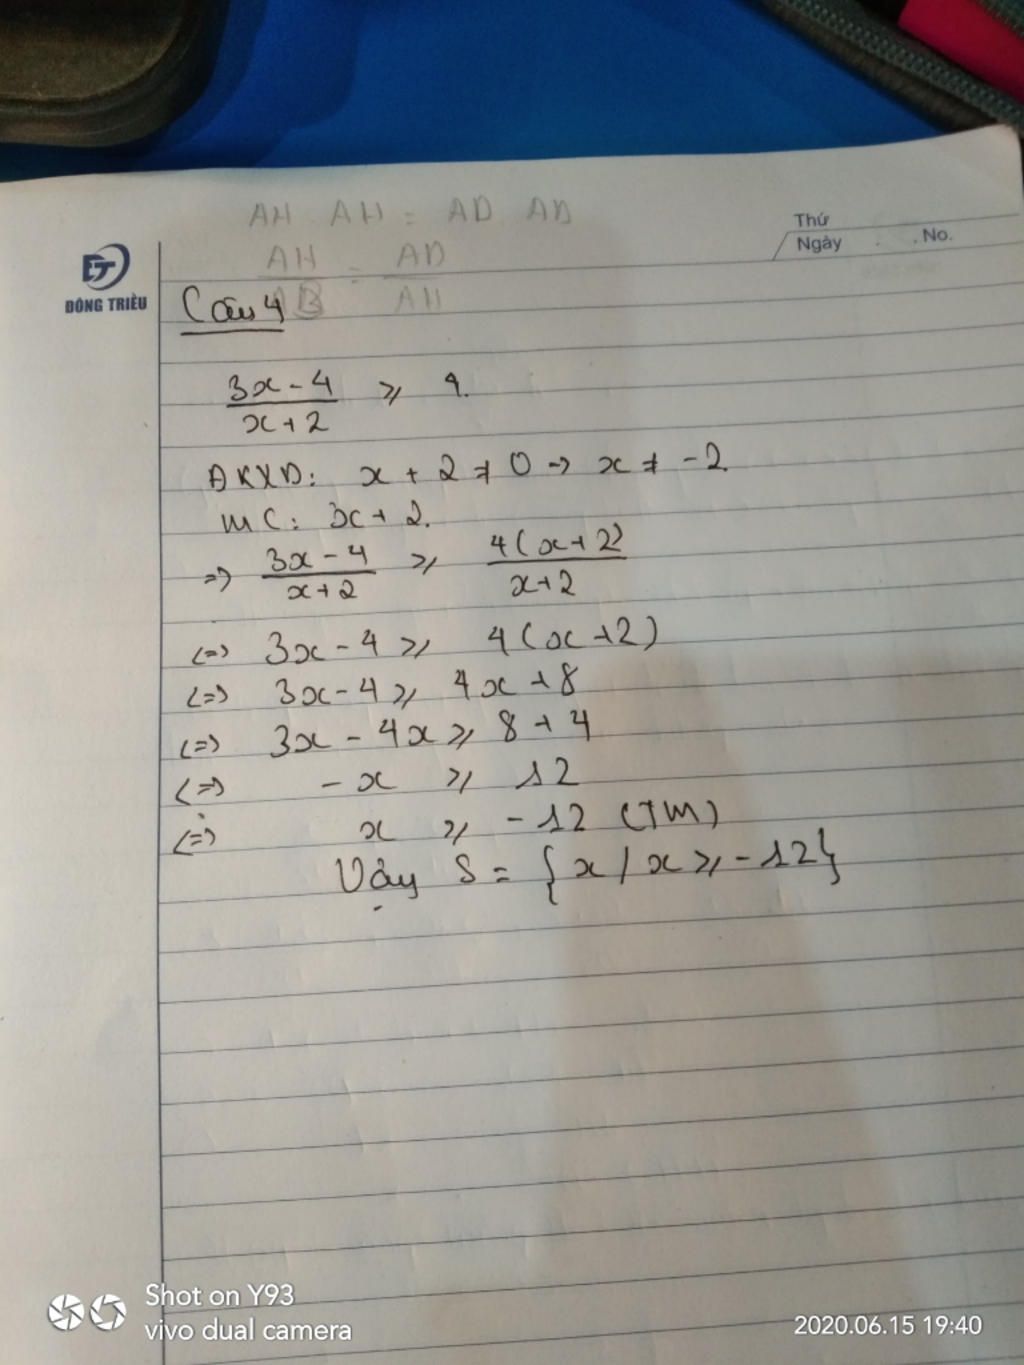 AH AH = AD AD
AH/AB = AD/AH
Thứ
Ngày . . No.
ĐÔNG TRIỀU
Câu 4
(3x-4)/(x+2) ⩾ 4.
ĐKXĐ: x + 2 ≠ 0 → x ≠ -2.
MC: x + 2.
=> (3x-4)/(x+2) ⩾ 4(x+2)/(x+2)
<=> 3x - 4 ⩾ 4(x+2)
<=> 3x-4 ⩾ 4x + 8
<=> 3x - 4x ⩾ 8 + 4
<=> -x ⩾ 12
<=> x ⩾ -12 (TM)
Vậy S = {x / x ⩾ -12}
Shot on Y93
vivo dual camera
2020.06.15 19:40